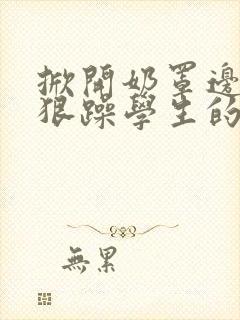 掀開奶罩邊
狠躁學生的
無累